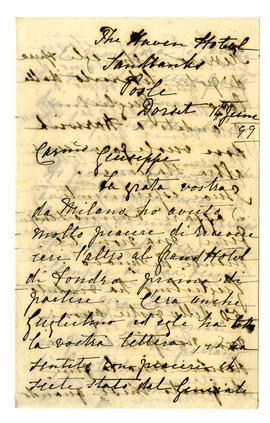 The Haven Hotel
Sandbanks
Poole
Dorset 14 June
99
Carmo Giuseppe
La grata vostra
da Milano ho avuto
molto piacere di
cere l'altro al Grand Hotel
di Londra prima di
partire. C'era anche
Guglielmo ed egli ha letto
la vostra lettera ed ha
sentito con piacere che
siete stato dal Generale